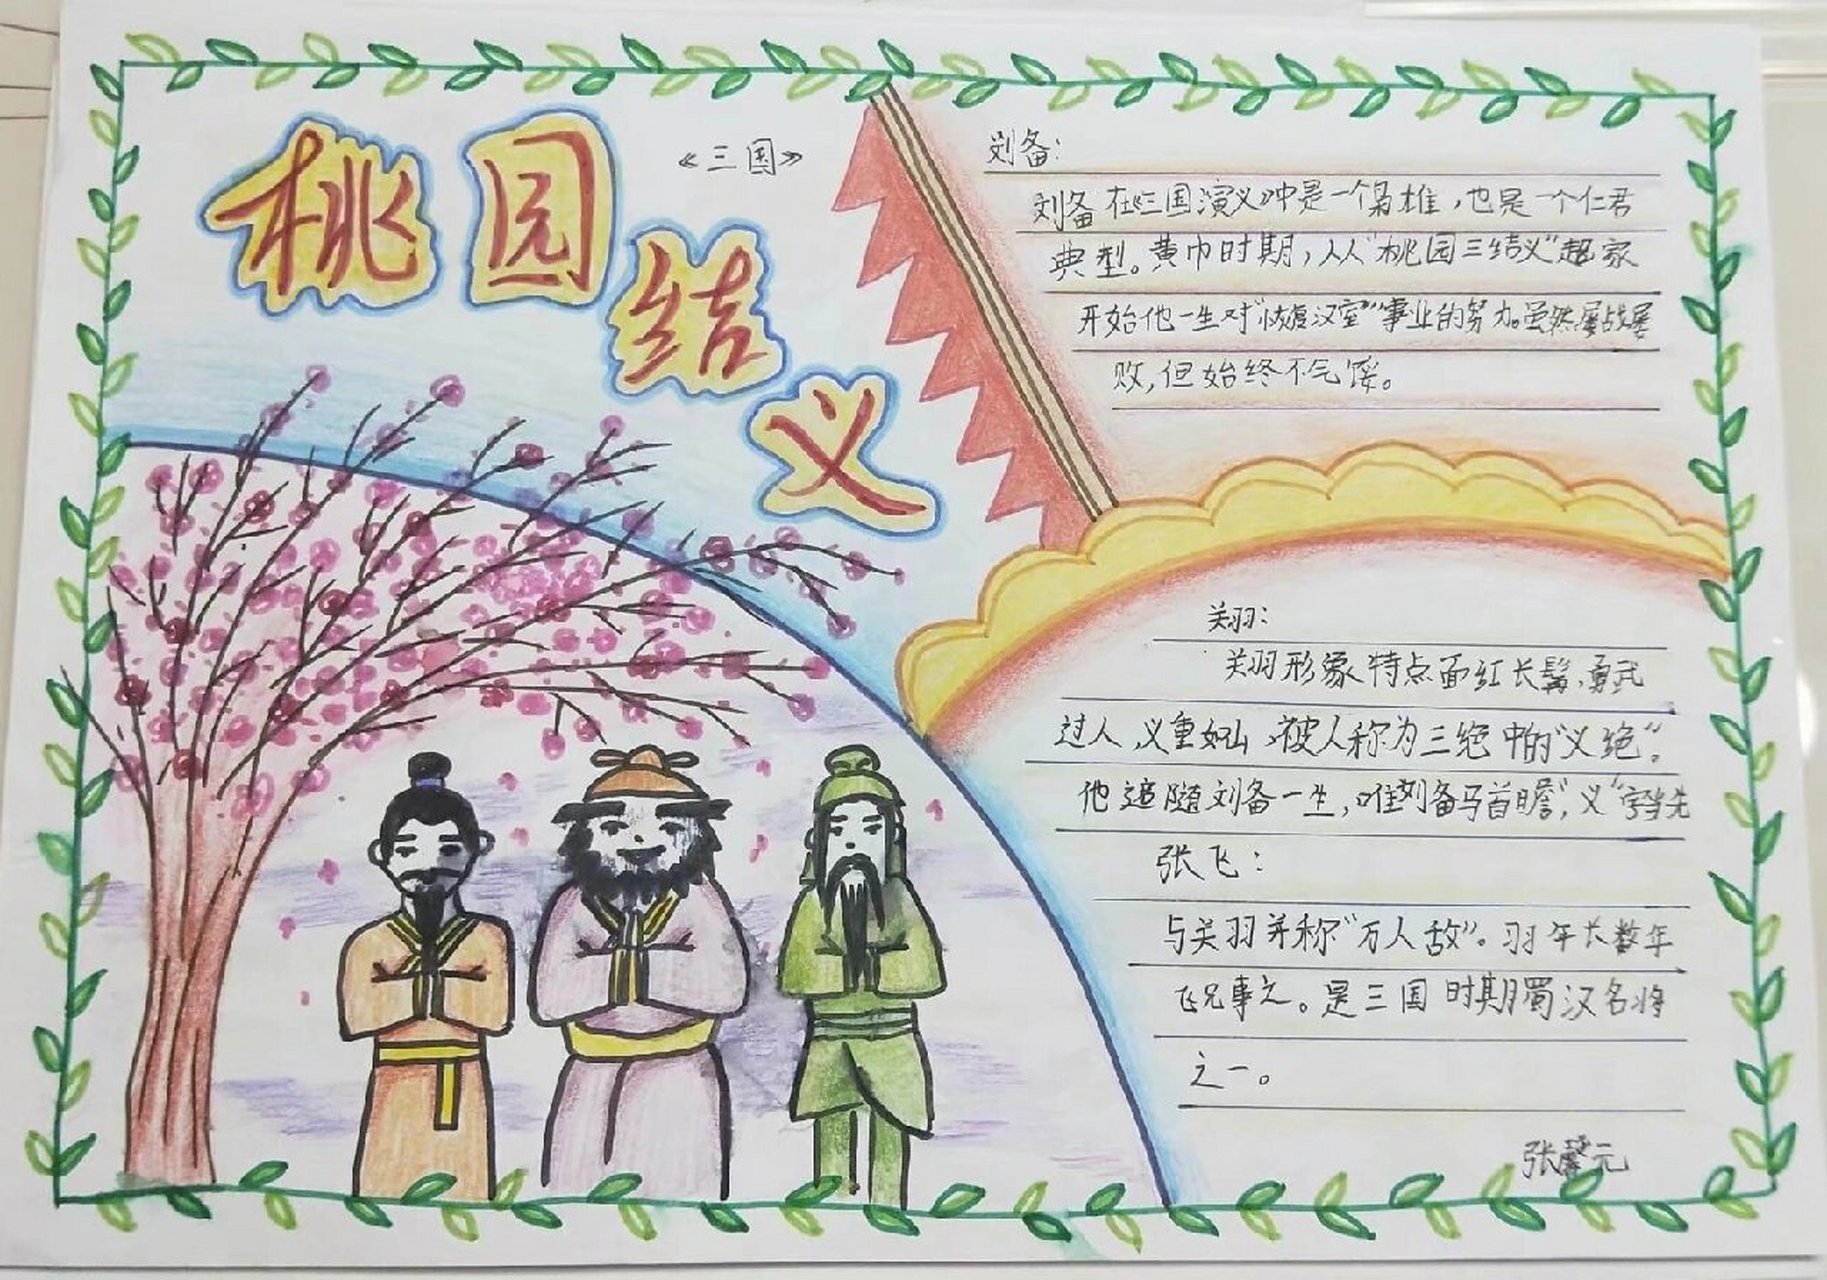 桃园结义
《三国》
刘备：
刘备在《三国演义》中是一个枭雄，也是一个仁君
典型。黄巾时期，从“桃园三结义”起家
开始他一生对“恢复汉室”事业的努力。虽然屡战屡
败，但始终不气馁。
关羽：
关羽形象特点面红长髯，勇武
过人，义重如山，被人称为三绝中的“义绝”。
他追随刘备一生，唯刘备马首瞻，“义”字当先
张飞：
与关羽并称“万人敌”。羽年长数年
飞兄事之。是三国时期蜀汉名将
之一。
张馨元